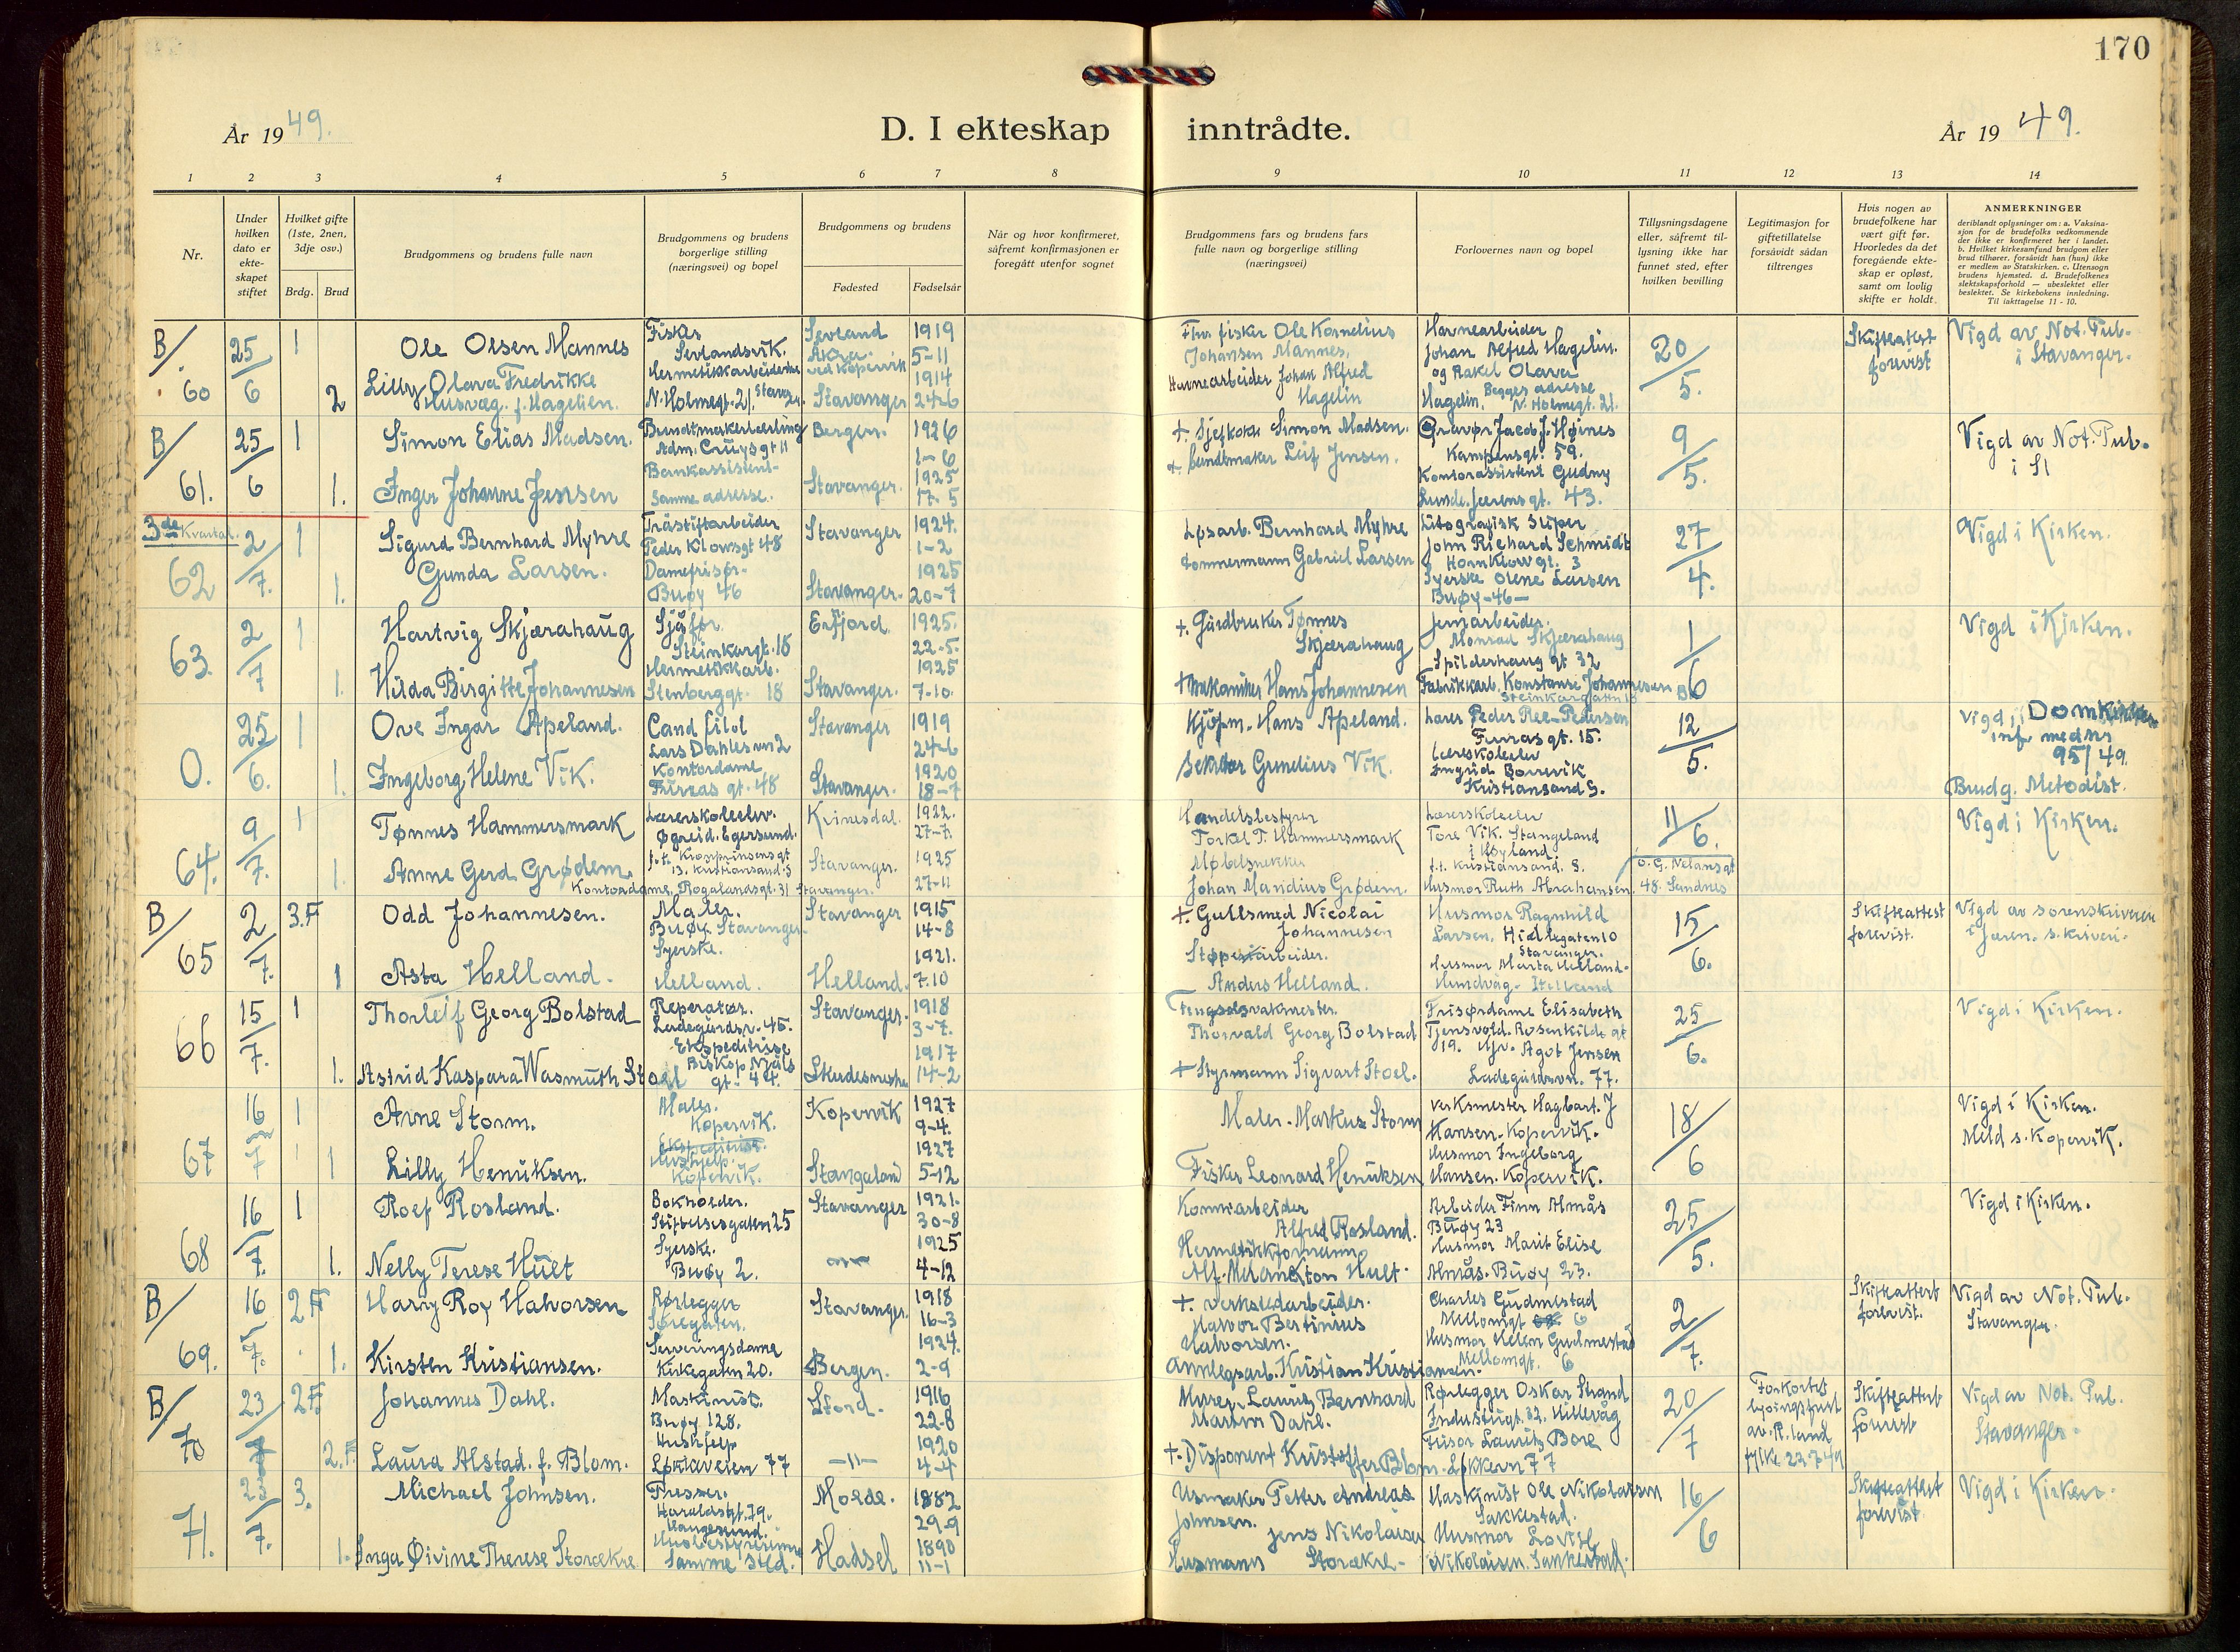 170
År 1949.
D. I ekteskap inntrådte.
År 1949.
1 2 3 4 5 6 7 8 9 10 11 12 13 14
Nr.
Under hvilken dato er ekte-skapet stiftet
Hvilket gifte (1ste, 2nen, 3dje osv.)
Brdg. Brud
Brudgommens og brudens fulle navn
Brudgommens og brudens borgerlige stilling (næringsvei) og bopel
Brudgommens og brudens
Fødested Fødselsår
Når og hvor konfirmeret, såfremt konfirmasjonen er foregått utenfor sognet
Brudgommens fars og brudens fars fulle navn og borgerlige stilling (næringsvei)
Forlovernes navn og bopel
Tillysningsdagene eller, såfremt til-lysning ikke har funnet sted, efter hvilken bevilling
Legitimasjon for giftetillatelse forsåvidt sådan tiltrenges
Hvis nogen av brudefolkene har vært gift før. Hvorledes da det foregående ekte-skap er opløst, samt om lovlig skifte er holdt
ANMERKNINGER
deriblandt oplysninger om: a. Vaksina-sjon for de brudefolks vedkommende der ikke er konfirmeret her i landet. b. Hvilket kirkesamfund brudgom eller brud tilhører, forsåvidt han (hun) ikke er medlem av Statskirken. c. Utensogn brudens hjemsted. d. Brudefolkenes slektskapsforhold — ubeslektet eller beslektet. Se kirkebokens innledning. Til iakttagelse 11 - 10.
B/ 60 25/6 1 Ole Olsen Mannes Fisker Sevlandsvik. Sevland Åkra. ved Kopervik 1919 5-11
2 Lilly Olava Fredrikke Husvæg. f. Hagelien. Hermetikkarbeiderske N. Holmegt. 21. Stavgr. Stavanger 1914 24-6
Fhv. fisker Ole Kornelius Johansen Mannes.
Havnearbeider Johan Alfred Hagelin
Havnearbeider Johan Alfred Hagelin. og Rakel Olava Hagelin. Begges adresse N. Holmegt. 21.
20/5. Skifteattest forevist Vigd av Not. Pub. i Stavanger.
B/ 61. 25/6 1 Simon Elias Madsen. Buntmakerlærling Adm. Cruysgt 11 Bergen. 1926 1-6
1. Inger Johanne Jensen Bankassistent samme adresse. Stavanger. 1925 17-5
+. Sjefkokk Simon Madsen.
+ buntmaker Leif Jensen.
Gravør Jacob J. Høines Kampensgt. 59.
Kontorassistent Gudny Lunde. Jærensgt. 43.
9/5. Vigd av Not. Pub. i St
3de Kvartal.
62 2/7. 1 Sigurd Bernhard Myhre Trästiftarbeider Peder Klowsgt 48 Stavanger 1924. 1-2
1. Gunda Larsen. Damefrisør. Buøy 46 Stavanger. 1925 20-7
Løsarb. Bernhard Myhre
tømmermann Gabriel Larsen
Litografisk sliper John Richard Schmidt Hornklowgt. 3
Syerske Olene Larsen Buøy-46-
27/4. Vigd i Kirken.
63. 2/7 1 Hartvig Skjærahaug Sjåfør. Steinkargt. 18 Erfjord 1925. 22-5.
1. Hilda Birgitte Johannesen Hermetikkarb. Stenberggt. 18 Stavanger. 1925 7-10.
+. Gårdbruker Tønnes Skjærahaug
+ Mekaniker Hans Johannesen
Jernarbeider. Monrad Skjærahaug Spilderhaug gt 32
Fabrikkarb. Konstanse Johannesen Steinkargaten 18
1/6 Vigd i Kirken.
0. 25/6. 1 Ove Ingar Apeland. Cand filol Lars Dahlesvn 2 Stavanger 1919 24-6
1. Ingeborg Helene Vik. Kontordame Furras gt. 48 Stavanger. 1920 18-7
Kjøpm. Hans Apeland.
Sektør Gundius Vik.
Lærer Peder Ree-Pedersen Furrasgt. 15.
Lærskoleelev Ingrid Borrevik Kristiansand S.
12/5. Vigd i Domkirken inf. med nr 95/49. Brudg. Metodist.
64. 9/7. 1 Tønnes Hammersmark Lærerskoleelev. Øgreid. Egersund. t.t. Kronprinsensgt 13. Kristiansand. S Kvinesdal. 1922. 27-7.
1. Anne Gerd Grødem. Kontordame, Rogalandsgt. 31 Stavanger. Stavanger. 1925 27-11
Handelsbestyrer Torkel T. Hammersmark
Møbelsnekker Johan Mandius Grødem.
Lærerskoleelev Tore Vik. Stangeland i Høyland t.t. Kristiansand. S.
Husmor Ruth Abrahamsen. O. G. Nelansgt 48. Sandnes
11/6. Vigd i Kirken.
B/ 65 2/7. 3.F Odd Johannesen. Maler. Buøy. Stavanger Stavanger 1915 14-8
1 Asta Helland. Syerske. Helland. Helland. 1921. 7-10
+. Gullsmed Nicolai Johannesen
Støperiarbeider. Anders Helland.
Husmor Ragnhild Larsen. Hidlegaten 10 Stavanger.
Husmor Marta Helland. Hundvåg. Helland
15/6. Skifteattest forevist. Vigd av sorenskriveren i Jæren. s. kriveri.
66 15/7. 1 Thorleif Georg Bolstad Reperatør. Ladegårdsv. 45. Stavanger. 1918 3-7.
1. Astrid Kaspara Wasmuth Stoel Ekspeditrise Biskop Njåls gt. 44. Skudesneshn 1917 14-2
Fengselsvaktmester. Thorvald Georg Bolstad
+ Styrmann Sigvart Stoel.
Frisørdame Elisabeth Tjensvold. Rosenkilde gt 19. Agot Jensen Ladegårdsvn. 77.
25/6. Vigd i Kirken.
67 16/7 1 Arne Storm. Maler. Kopervik. Kopervik 1927 9-4.
1 Lilly Henriksen. Ekspeditrise. Hushjelp. Kopervik. Stangeland 1927 5-12
Maler. Markus Storm
Fisker Leonard Henriksen
Verksmester Hagbart. J Hansen. Kopervik.
Husmor Ingeborg Hansen. Kopervik.
18/6 Vigd i Kirken. Meld s. Kopervik.
68 16/7. 1 Roef Rosland. Bokholder. Stiftelsesgaten 25 Stavanger 1921. 30-8
1. Nelly Terese Hult Syerske. Buøy 2. 1925 4-12
Kommarbeider Alfred Rosland.
Hermetikkformann Alf. Melankton Hult.
Arbeider Finn Almås Buøy 23
Husmor Marit Elise Almås. Buøy 23.
25/5. Vigd i Kirken.
B/ 69. 16/7. 2F Harry Roy Halvorsen Rørlegger Søregaten. Stavanger. 1918 16-3
1. Kirsten Kristiansen. Serveringsdame Kirkegaten 20. Bergen. 1924. 2-9
+. Verkstedarbeider. Halvor Bertinius Halvorsen.
Anleggsarb. Kristian Kristiansen.
Charles Gudmestad Mellomgt 6
Husmor Helen Gudmestad Mellomgt. 6
2/7. Skifteattest forevist. Vigd av Not. Pub. Stavanger.
B/ 70 23/7 2F. Johannes Dahl. Maskinist. Buøy 128. Stord. 1916 22-8
2.F. Laura Alstad. f. Blom. Hushjelp Løkkeveien 77 -11- 1920 4-4
Murer. Lauritz Bernhard Martin Dahl.
+. Disponent Kristoffer Blom.
Rørlegger Oskar Strand Industrigt. 32. Hillevåg
Frisør Lauritz Bore Løkkevn 77
20/7 Forkortet lysingsfrist av R. land fylke 22-7-49 Skifteattest forevist Vigd av Not. Pub. Stavanger.
71. 23/7. 3. Michael Johnsen. Fresser. Haraldsgt. 79. Haugesund. Molde. 1882 29-9
1. Inga Øivine Therese Storækre Husbestyrerinne Samme sted. Hadsel 1890 11-1
Urmaker Peter Andreas Johnsen.
Jens Nikolaisen Husmann Storækre.
Maskinist Ole Nikolaisen Sakkestad.
Husmor Lovise Nikolaisen. Sakkestad.
16/6 Skifteattest forevist. Vigd i Kirken.